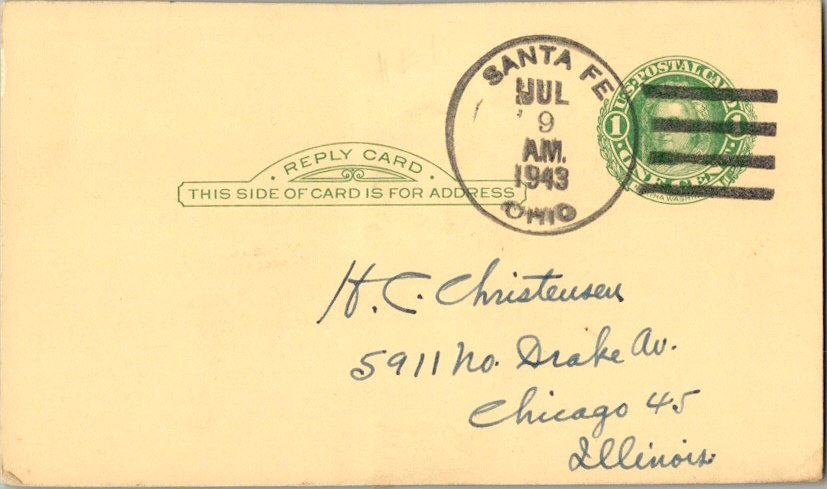 SANTA FE
JUL
9
AM.
1943
OHIO
U.S. POSTAL CARD
1 1
ONE CENT
REPLY CARD
THIS SIDE OF CARD IS FOR ADDRESS
H. C. Christensen
5911 No. Drake Av.
Chicago 45
Illinois